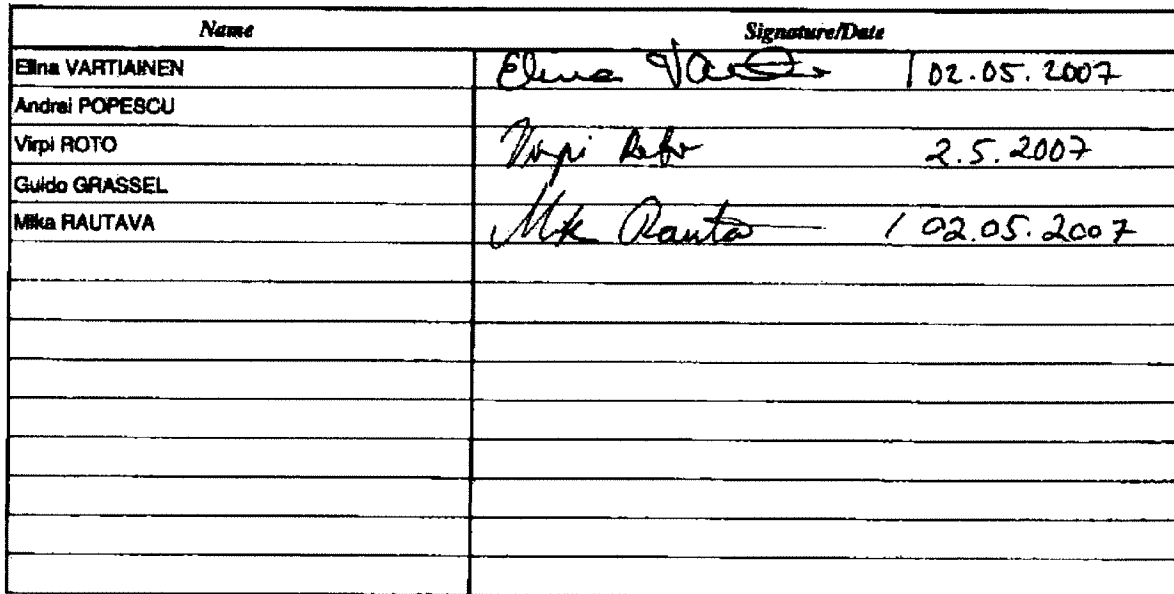 Name Signature/Date
Elina VARTIAINEN Elina Vart 02.05.2007
Andrei POPESCU
Virpi ROTO Virpi Roto 2.5.2007
Guido GRASSEL
Mika RAUTAVA Mika Rauta / 02.05.2007